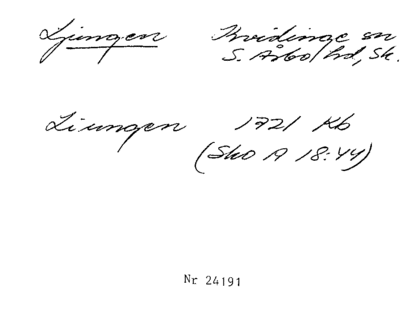 Ljungen Kvidinge sn
S. Åsbo hd, Sk.
Liungen 1721 Kb
(Sko A 18:44)
Nr 24191